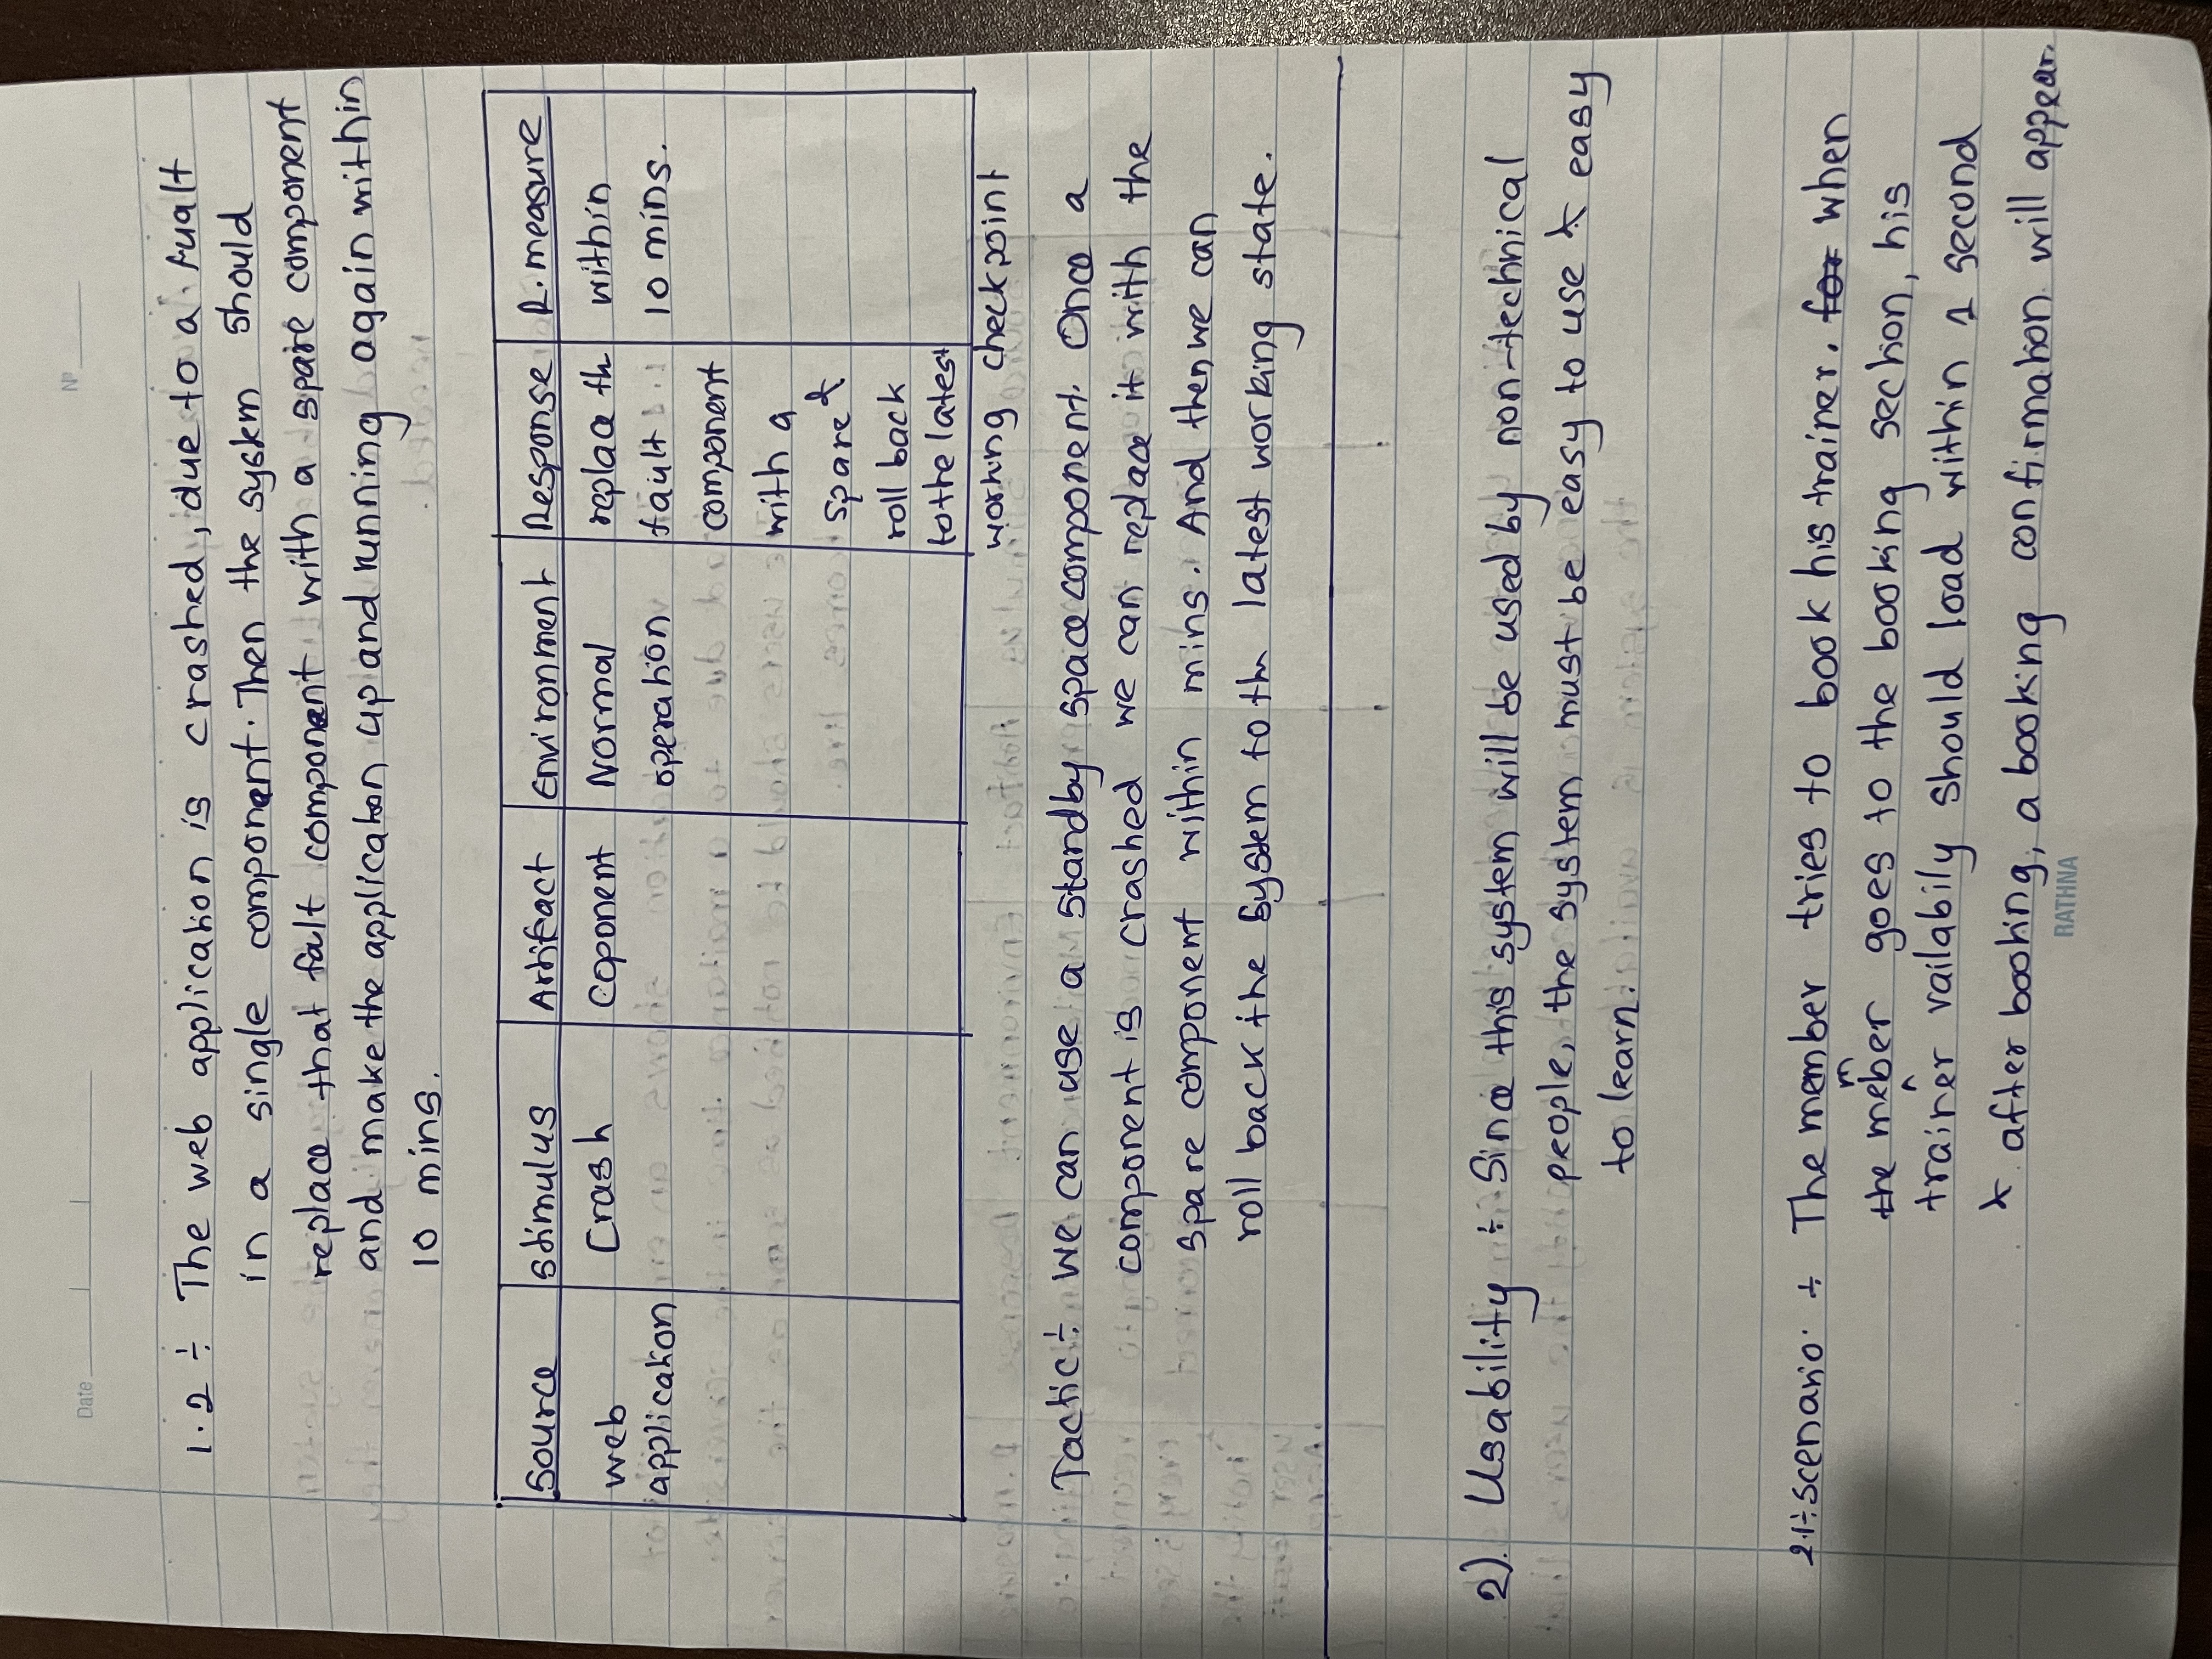 Date
Nº
1.2 ÷ The web application is crashed, due to a fualt
in a single component. Then the system should
replace that falt component with a spare component
and make the application up and running again within
10 mins.
Source Stimulus Artifact Environment Response R. measure
web application Crash Coponent Normal operation replace th fault component with a spare & roll back to the latest working checkpoint within 10 mins.
Tactic ÷ we can use a standby space component. Once a
component is crashed we can replace it with the
spare component within mins. And then we can
roll back the system to th latest working state.
2). Usability ÷ Since this system will be used by non-technical
people, the system must be easy to use & easy
to learn.
2.1÷ scenario ÷ The member tries to book his trainer. for when
the member goes to the booking section, his
trainer vailabily should load within 1 second
& after booking, a booking confirmation will appear.
RATHNA